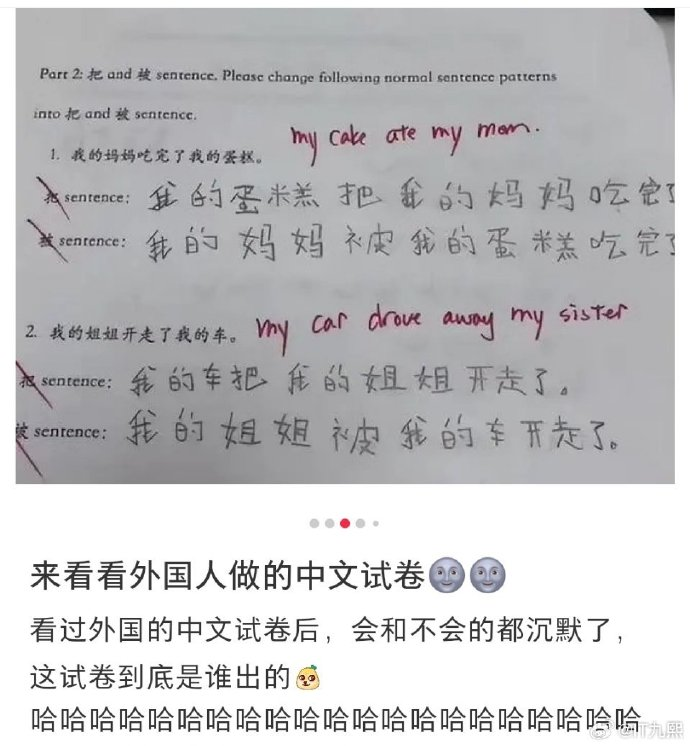 Part 2: 把 and 被 sentence. Please change following normal sentence patterns
into 把 and 被 sentence.
my cake ate my mom.
1. 我的妈妈吃完了我的蛋糕。
把 sentence: 我的蛋糕把我的妈妈吃完了
被 sentence: 我的妈妈被我的蛋糕吃完了
my car drove away my sister
2. 我的姐姐开走了我的车。
把 sentence: 我的车把我的姐姐开走了。
被 sentence: 我的姐姐被我的车开走了。
来看看外国人做的中文试卷🌚🌚
看过外国的中文试卷后，会和不会的都沉默了，
这试卷到底是谁出的
哈哈哈哈哈哈哈哈哈哈哈哈哈哈哈哈哈哈哈哈哈
@IT九熙